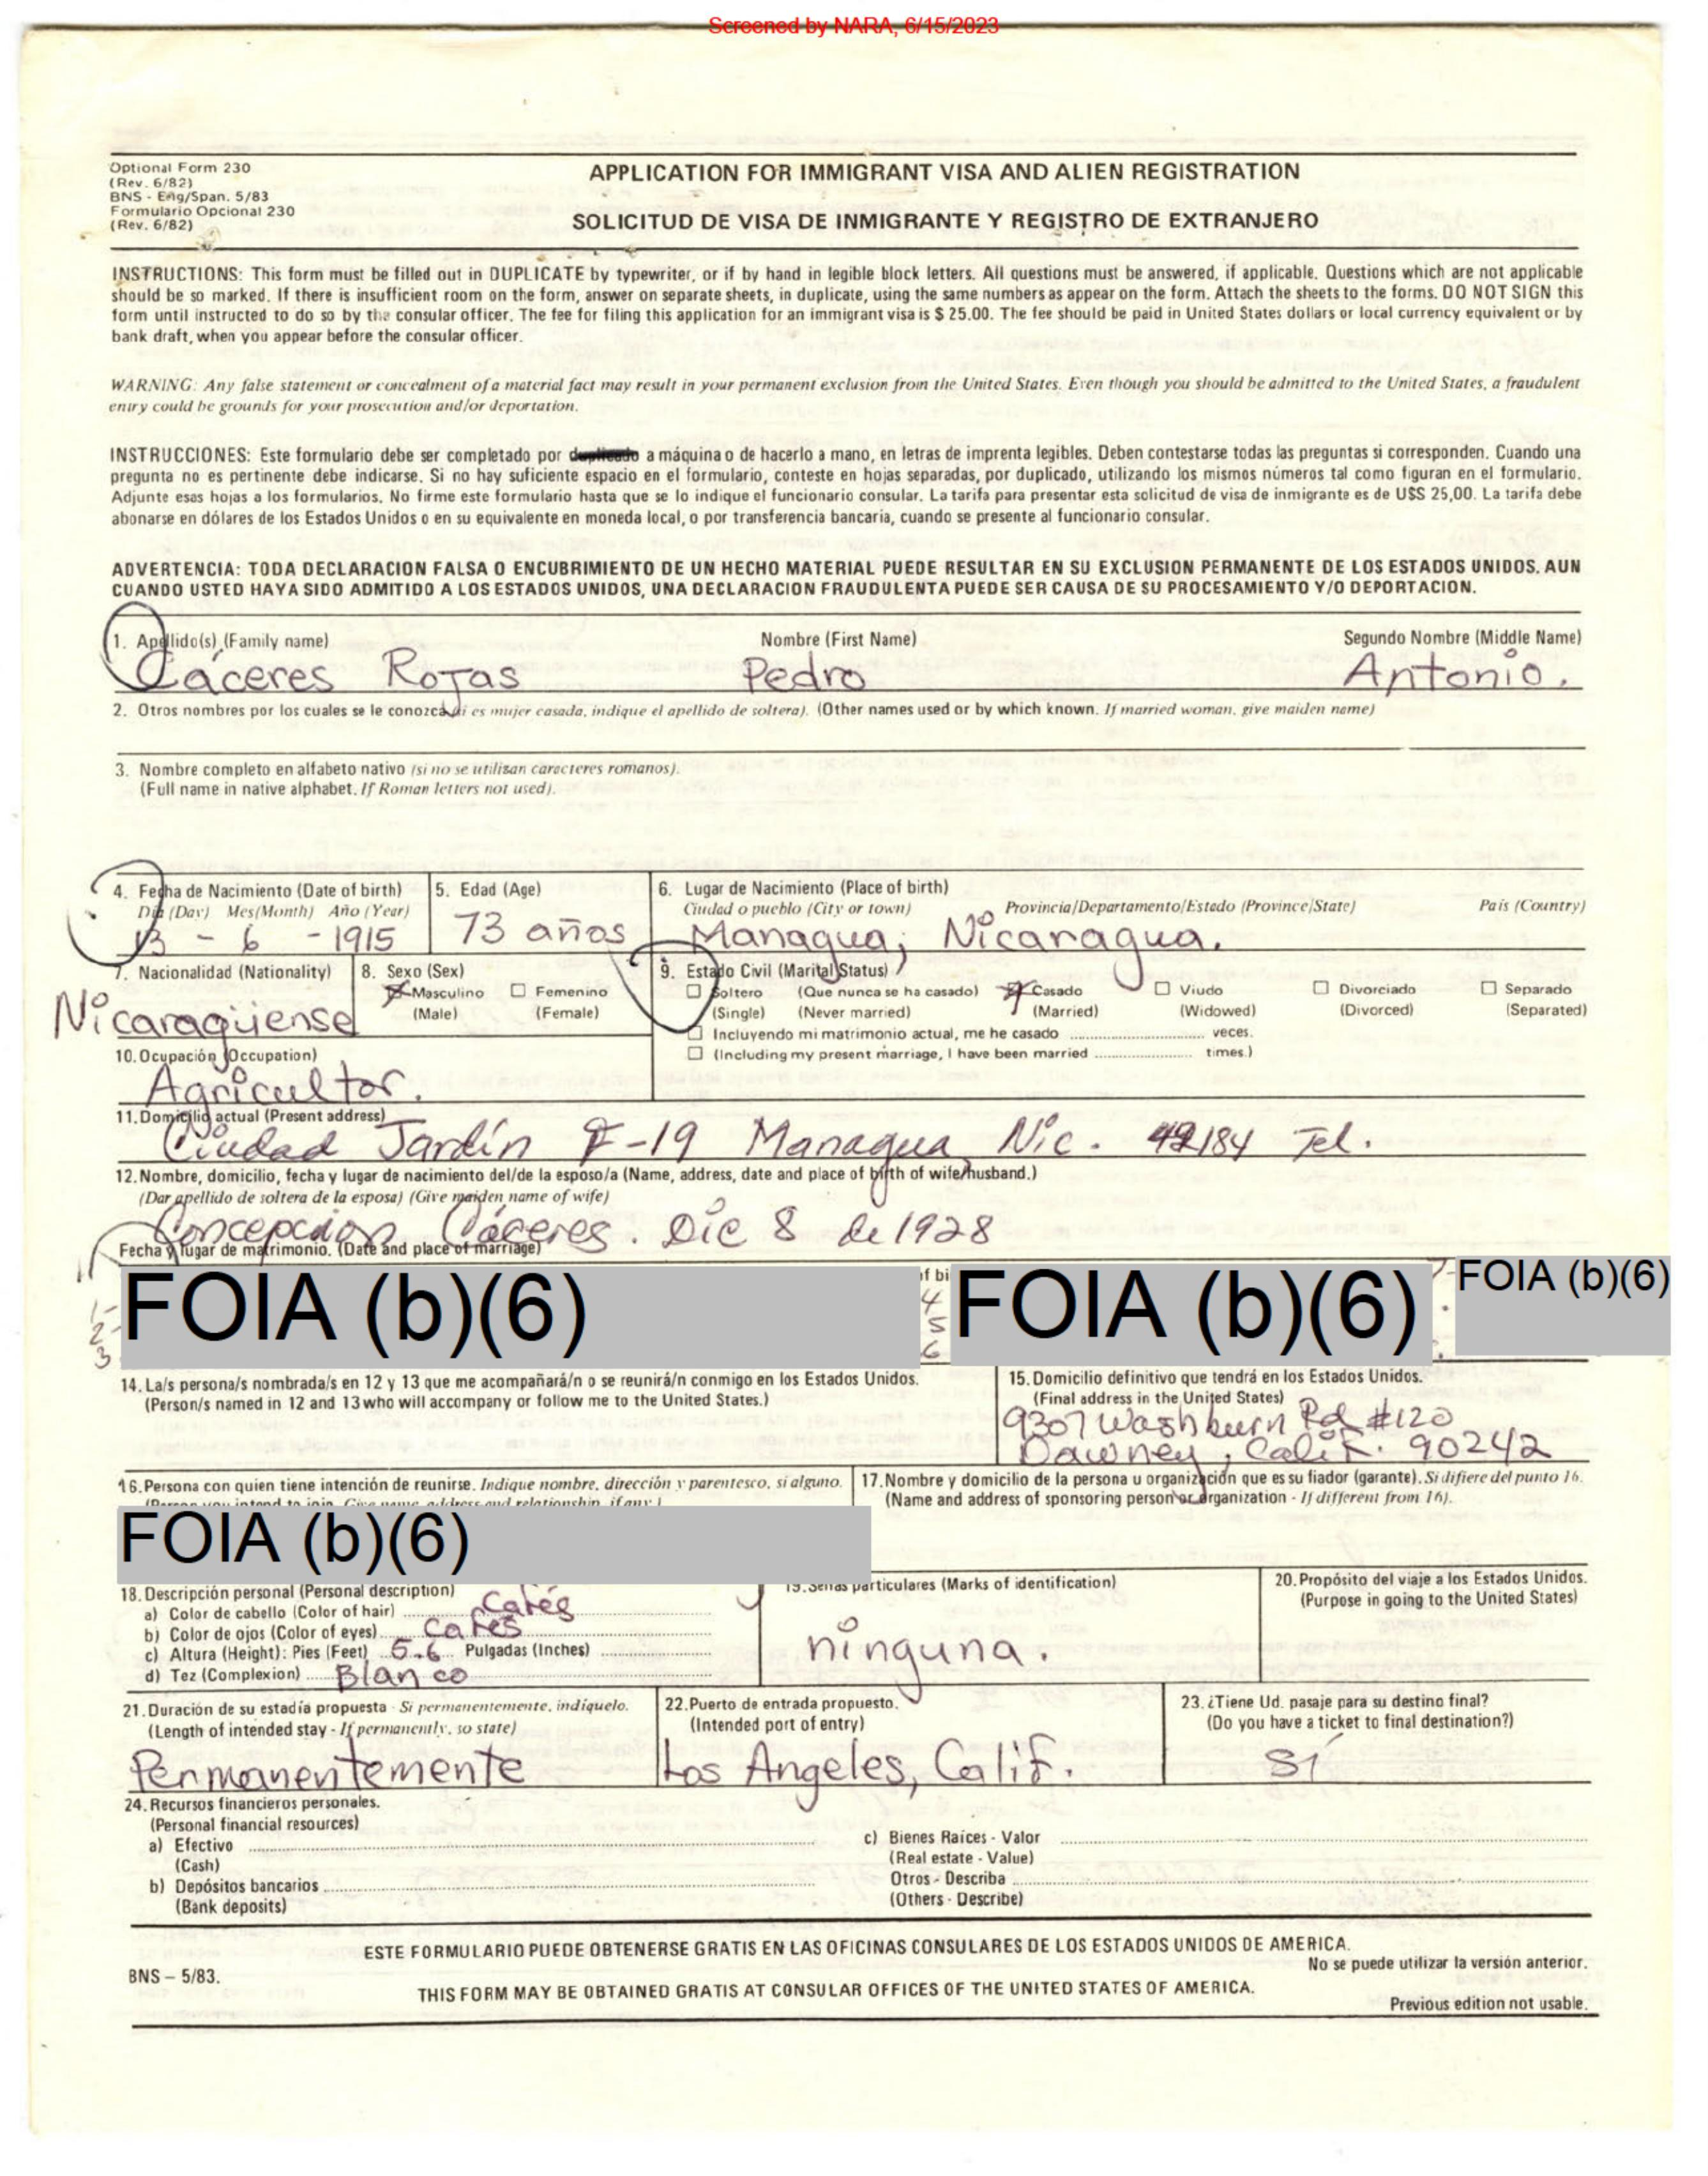 Screened by NARA, 6/15/2023
Optional Form 230
(Rev. 6/82)
BNS - Eng/Span. 5/83
Formulario Opcional 230
(Rev. 6/82)
APPLICATION FOR IMMIGRANT VISA AND ALIEN REGISTRATION
SOLICITUD DE VISA DE INMIGRANTE Y REGISTRO DE EXTRANJERO
INSTRUCTIONS: This form must be filled out in DUPLICATE by typewriter, or if by hand in legible block letters. All questions must be answered, if applicable. Questions which are not applicable
should be so marked. If there is insufficient room on the form, answer on separate sheets, in duplicate, using the same numbers as appear on the form. Attach the sheets to the forms. DO NOT SIGN this
form until instructed to do so by the consular officer. The fee for filing this application for an immigrant visa is $ 25.00. The fee should be paid in United States dollars or local currency equivalent or by
bank draft, when you appear before the consular officer.
WARNING: Any false statement or concealment of a material fact may result in your permanent exclusion from the United States. Even though you should be admitted to the United States, a fraudulent
entry could be grounds for your prosecution and/or deportation.
INSTRUCCIONES: Este formulario debe ser completado por duplicado a máquina o de hacerlo a mano, en letras de imprenta legibles. Deben contestarse todas las preguntas si corresponden. Cuando una
pregunta no es pertinente debe indicarse. Si no hay suficiente espacio en el formulario, conteste en hojas separadas, por duplicado, utilizando los mismos números tal como figuran en el formulario.
Adjunte esas hojas a los formularios. No firme este formulario hasta que se lo indique el funcionario consular. La tarifa para presentar esta solicitud de visa de inmigrante es de U$S 25,00. La tarifa debe
abonarse en dólares de los Estados Unidos o en su equivalente en moneda local, o por transferencia bancaria, cuando se presente al funcionario consular.
ADVERTENCIA: TODA DECLARACION FALSA O ENCUBRIMIENTO DE UN HECHO MATERIAL PUEDE RESULTAR EN SU EXCLUSION PERMANENTE DE LOS ESTADOS UNIDOS. AUN
CUANDO USTED HAYA SIDO ADMITIDO A LOS ESTADOS UNIDOS, UNA DECLARACION FRAUDULENTA PUEDE SER CAUSA DE SU PROCESAMIENTO Y/O DEPORTACION.
1. Apellido(s) (Family name) Nombre (First Name) Segundo Nombre (Middle Name)
Cáceres Rojas Pedro Antonio.
2. Otros nombres por los cuales se le conozca (si es mujer casada, indique el apellido de soltera). (Other names used or by which known. If married woman, give maiden name)
3. Nombre completo en alfabeto nativo (si no se utilizan caracteres romanos).
(Full name in native alphabet. If Roman letters not used).
4. Fecha de Nacimiento (Date of birth) 5. Edad (Age) 6. Lugar de Nacimiento (Place of birth)
Día (Day) Mes(Month) Año (Year) Ciudad o pueblo (City or town) Provincia/Departamento/Estado (Province/State) País (Country)
13 - 6 - 1915 73 años Managua, Nicaragua.
7. Nacionalidad (Nationality) 8. Sexo (Sex) 9. Estado Civil (Marital Status)
Masculino Femenino Soltero (Que nunca se ha casado) Casado Viudo Divorciado Separado
Nicaragüense (Male) (Female) (Single) (Never married) (Married) (Widowed) (Divorced) (Separated)
Incluyendo mi matrimonio actual, me he casado veces.
10. Ocupación (Occupation) (Including my present marriage, I have been married times.)
Agricultor.
11. Domicilio actual (Present address)
Ciudad Jardín F-19 Managua Nic. 42184 Tel.
12. Nombre, domicilio, fecha y lugar de nacimiento del/de la esposo/a (Name, address, date and place of birth of wife/husband.)
(Dar apellido de soltera de la esposa) (Give maiden name of wife)
Concepcion Cáceres. Dic 8 de 1928
Fecha y lugar de matrimonio. (Date and place of marriage)
FOIA (b)(6) f bi FOIA (b)(6) FOIA (b)(6)
1- 4
2- 5
3 6
14. La/s persona/s nombrada/s en 12 y 13 que me acompañará/n o se reunirá/n conmigo en los Estados Unidos. 15. Domicilio definitivo que tendrá en los Estados Unidos.
(Person/s named in 12 and 13 who will accompany or follow me to the United States.) (Final address in the United States)
9307 Washburn Rd #120
Dawney, Calif. 90242
16. Persona con quien tiene intención de reunirse. Indique nombre, dirección y parentesco, si alguno. 17. Nombre y domicilio de la persona u organización que es su fiador (garante). Si difiere del punto 16.
(Person you intend to join. Give name, address and relationship, if any) (Name and address of sponsoring person or organization - If different from 16).
FOIA (b)(6)
18. Descripción personal (Personal description) 19. Señas particulares (Marks of identification) 20. Propósito del viaje a los Estados Unidos.
a) Color de cabello (Color of hair) Cafés (Purpose in going to the United States)
b) Color de ojos (Color of eyes) Cafés
c) Altura (Height): Pies (Feet) 5.6 Pulgadas (Inches) ninguna.
d) Tez (Complexion) Blanco
21. Duración de su estadía propuesta - Si permanentemente, indíquelo. 22. Puerto de entrada propuesto. 23. ¿Tiene Ud. pasaje para su destino final?
(Length of intended stay - If permanently, so state) (Intended port of entry) (Do you have a ticket to final destination?)
Permanentemente Los Angeles, Calif. Sí
24. Recursos financieros personales.
(Personal financial resources)
a) Efectivo c) Bienes Raíces - Valor
(Cash) (Real estate - Value)
b) Depósitos bancarios Otros - Describa
(Bank deposits) (Others - Describe)
ESTE FORMULARIO PUEDE OBTENERSE GRATIS EN LAS OFICINAS CONSULARES DE LOS ESTADOS UNIDOS DE AMERICA.
No se puede utilizar la versión anterior.
BNS – 5/83.
THIS FORM MAY BE OBTAINED GRATIS AT CONSULAR OFFICES OF THE UNITED STATES OF AMERICA.
Previous edition not usable.